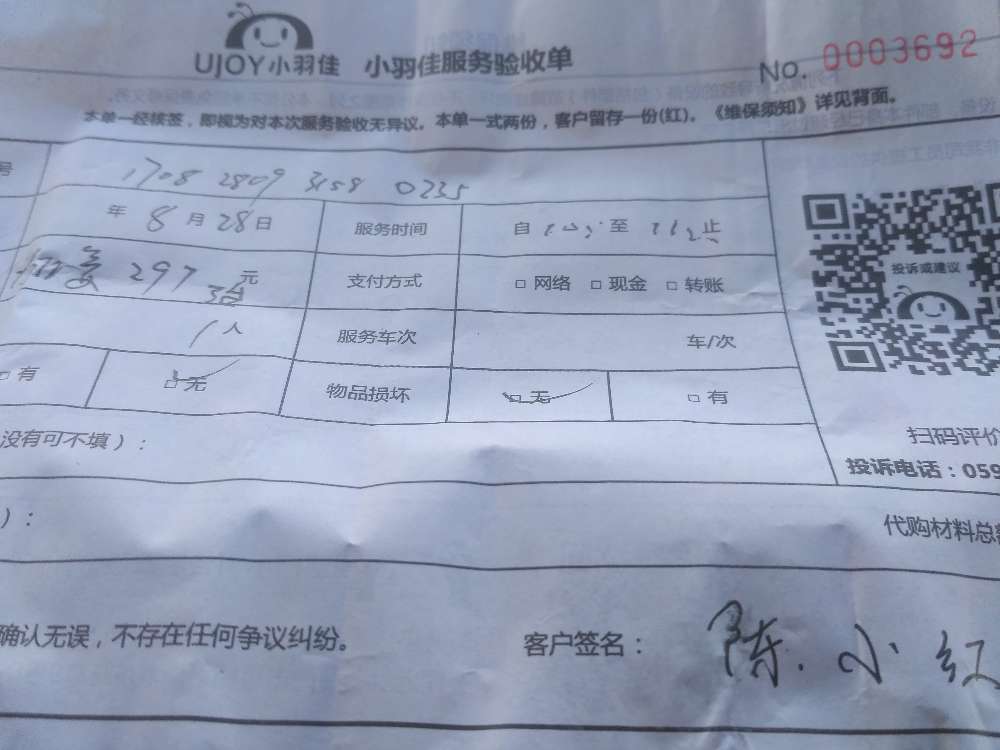 UJOY小羽佳 小羽佳服务验收单
No. 0003692
本单一经核签，即视为对本次服务验收无异议。本单一式两份，客户留存一份(红)。《维保须知》详见背面。
号 1708 2809 3158 0235
年 8 月 28 日 服务时间 自 至 止
297 元 支付方式 □ 网络 □ 现金 □ 转账
投诉或建议
1 人 服务车次 车/次
□ 有 □ 无 物品损坏 □ 无 □ 有
没有可不填）：
扫码评价
投诉电话：059
）：
代购材料总
确认无误，不存在任何争议纠纷。 客户签名： 陈小红